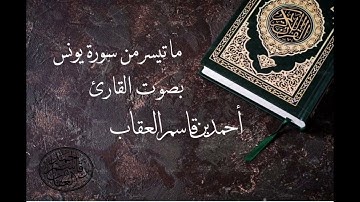 ما تيسر من سورة يونس
بصوت القارئ
أحمد بن قاسم العقاب